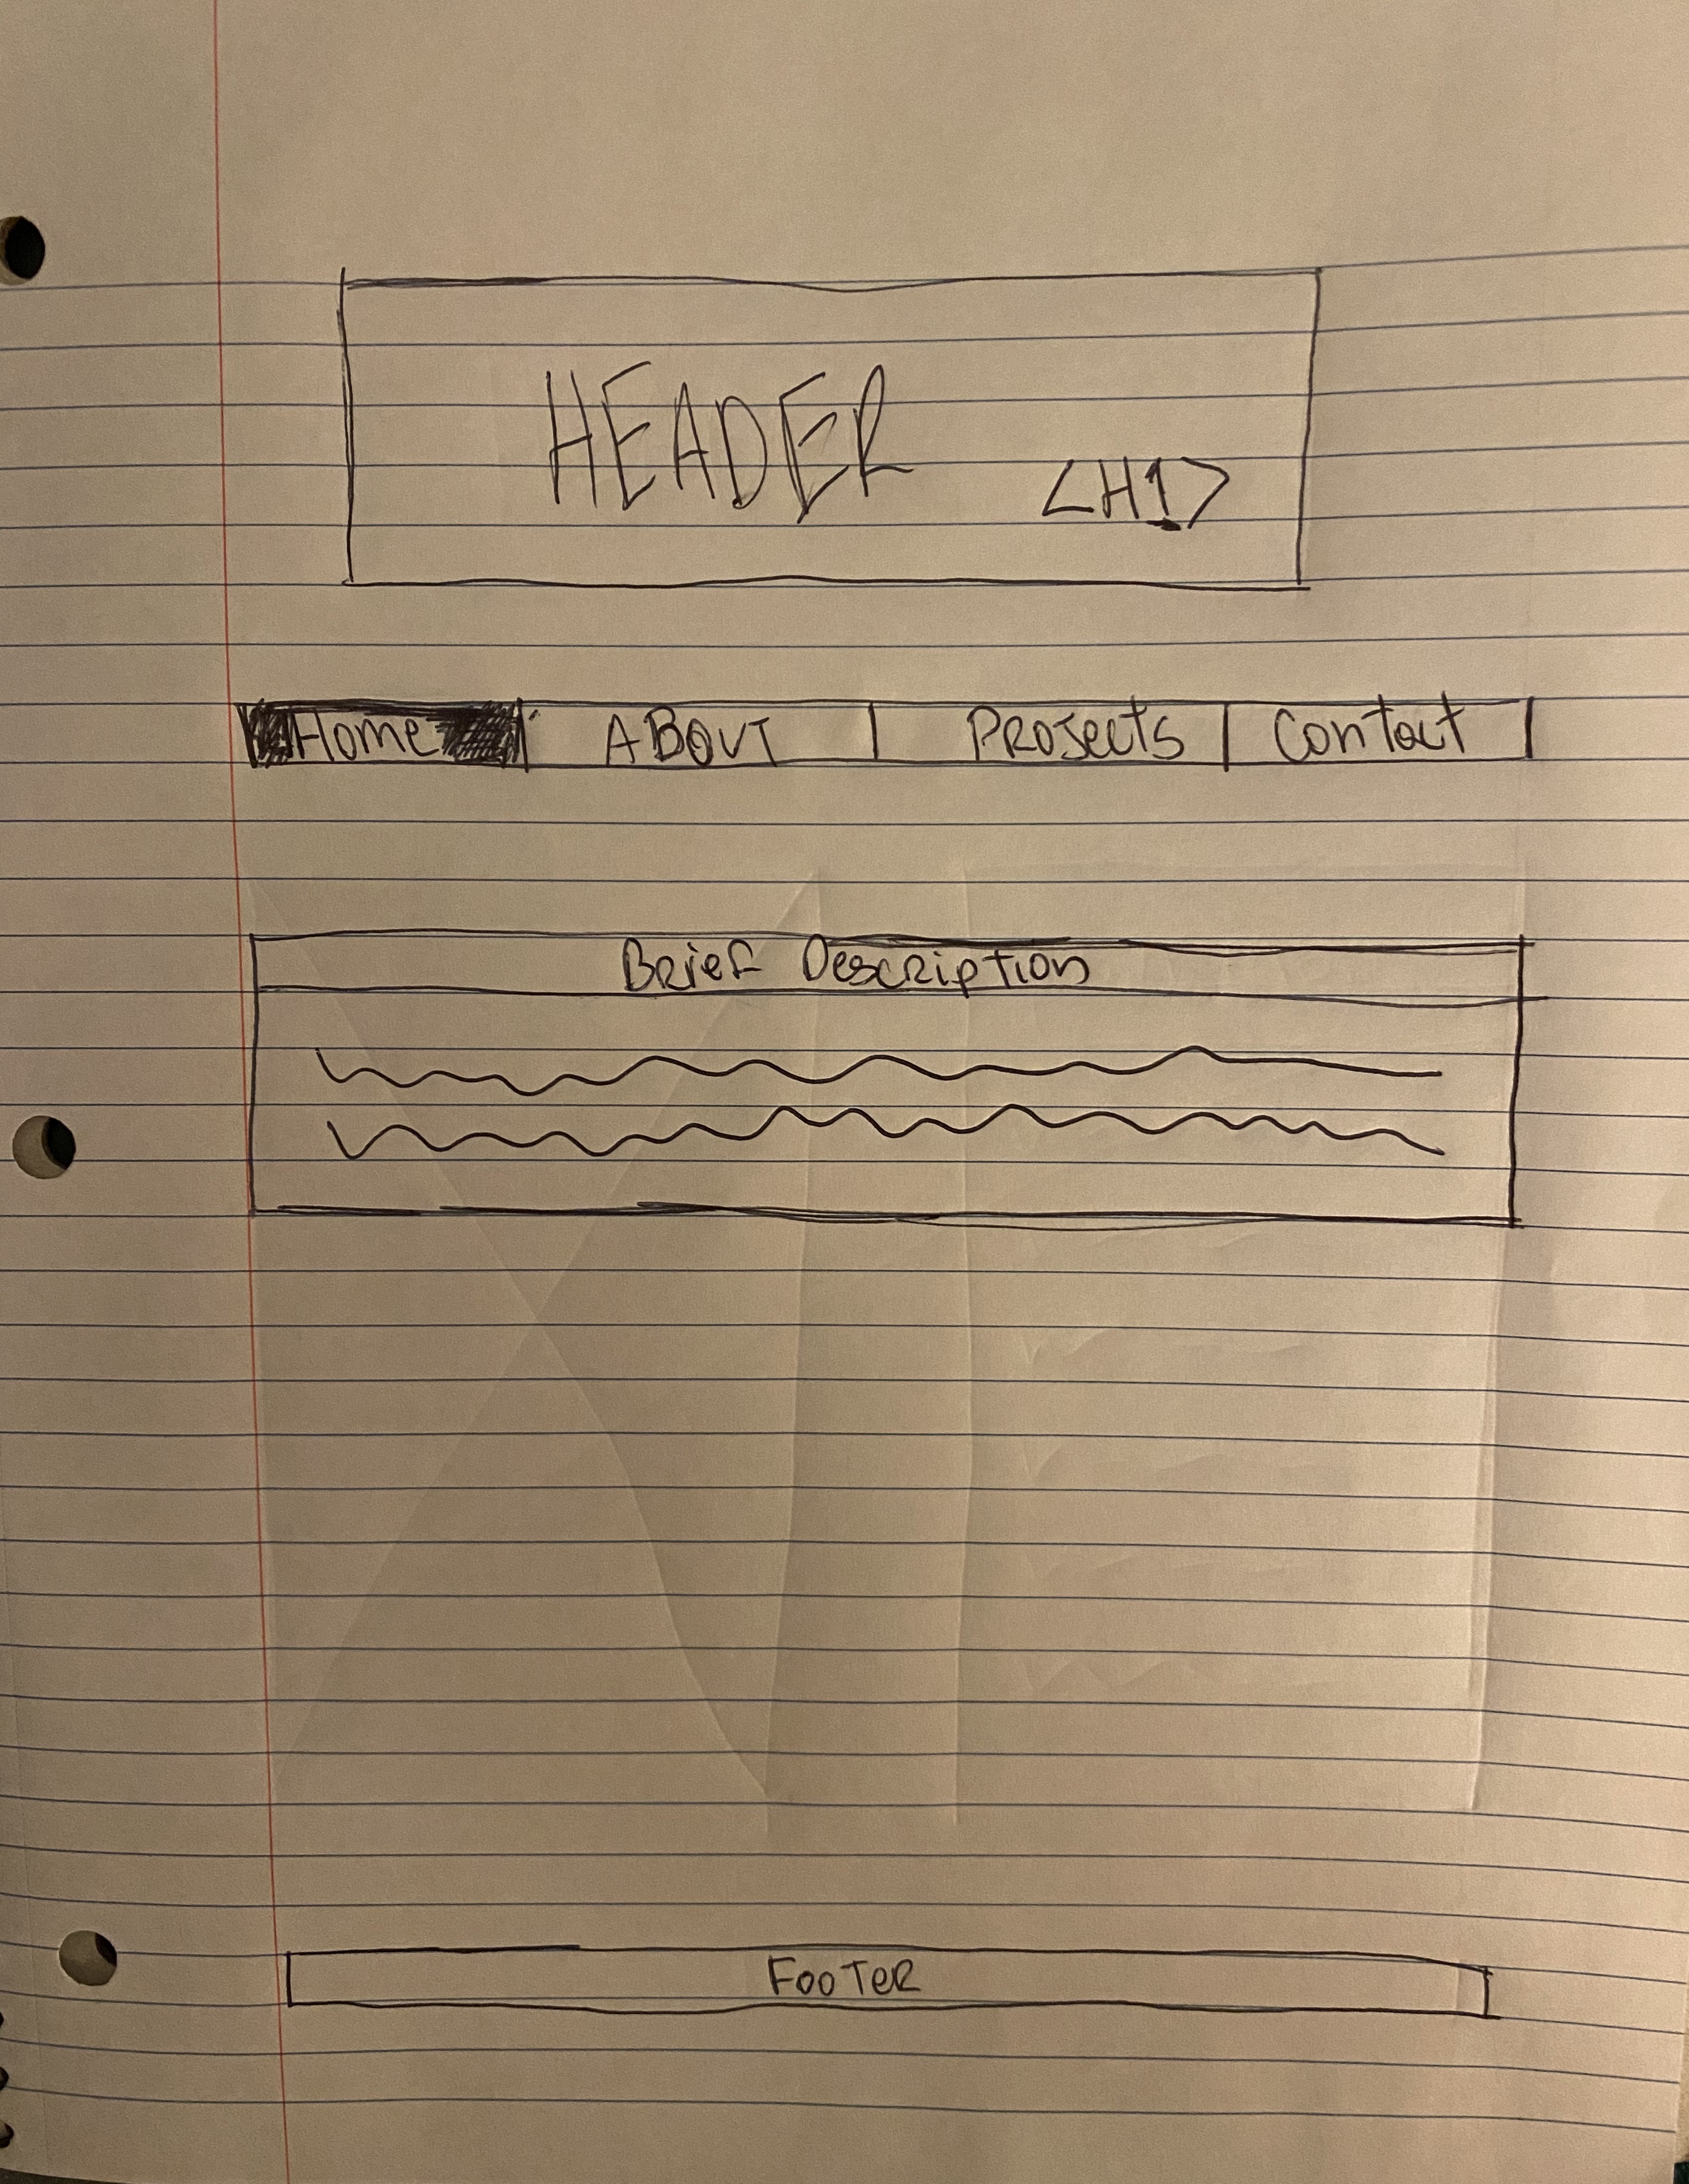 HEADER
<H1>
Home ABOUT PROJects Contact
Brief Description
FooTeR